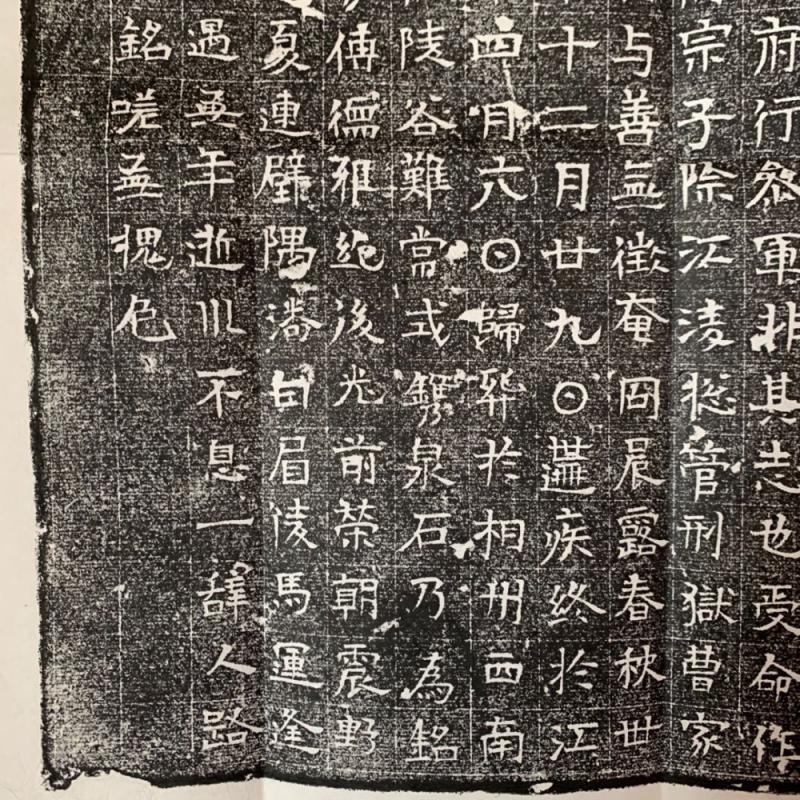 府行叅軍非其志也受命作
宗子除江淩惣管刑獄曹家
与善無徵奄同晨露春秋卅
十二月廿九日遘疾終於江
四月六日歸葬於相州西南
陵谷難常式鐫泉石乃為銘
傳德雅絶後光前榮朝震野
夏連璧隅潘曰眉馬運逢
遇無年逝川不息一辭人路
銘嗟無愧色